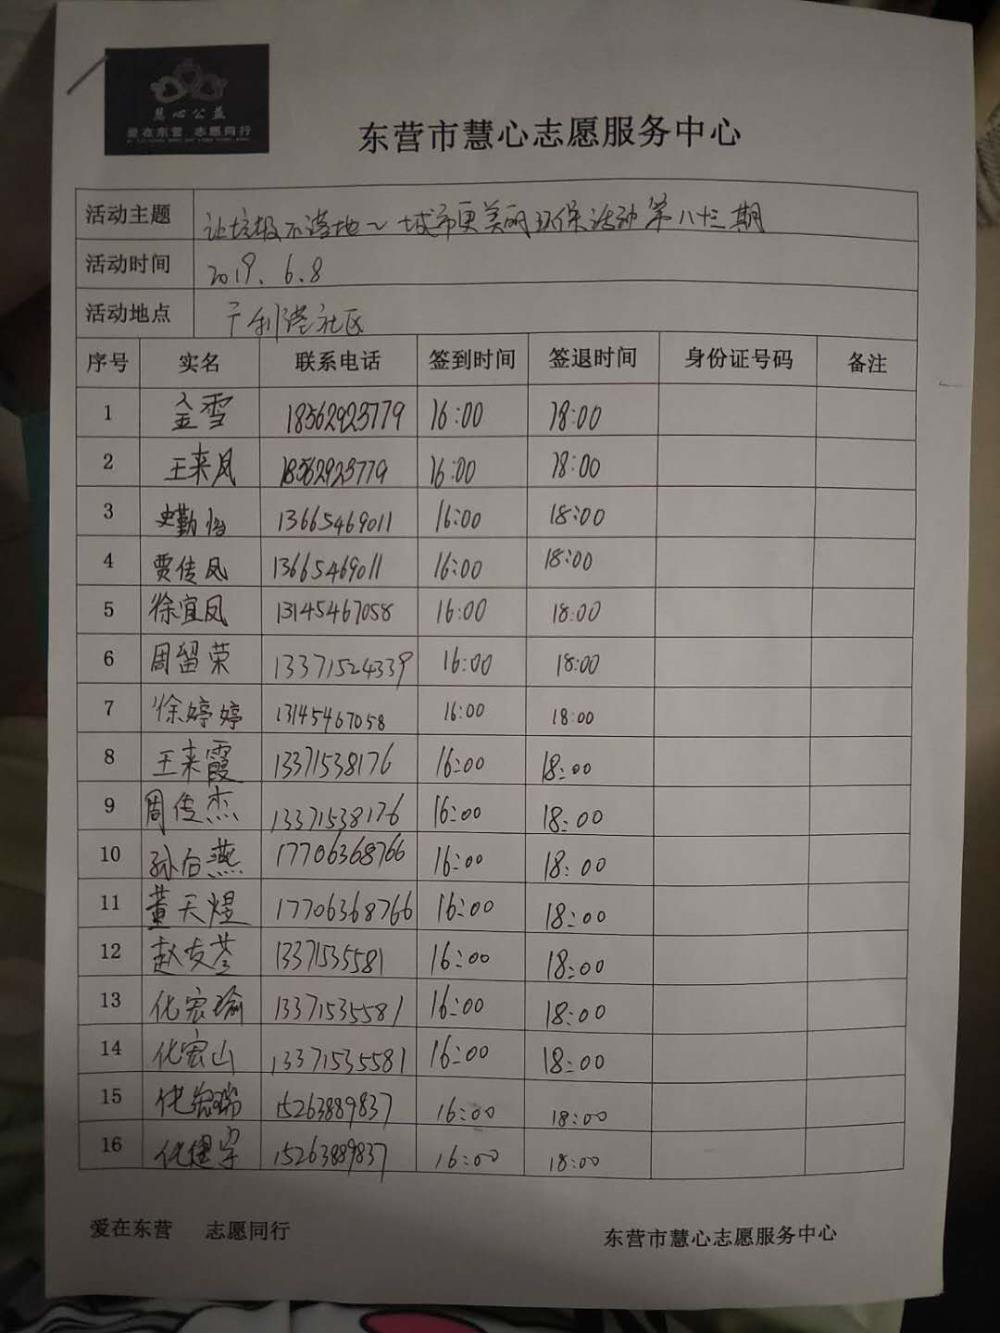 慧心公益
爱在东营 志愿同行
东营市慧心志愿服务中心
活动主题 让垃圾不落地~城市更美丽环保活动第八十三期
活动时间 2019.6.8
活动地点 广利港社区
序号 实名 联系电话 签到时间 签退时间 身份证号码 备注
1 金雪 18562923779 16:00 18:00
2 王来凤 18562923779 16:00 18:00
3 史勤 13665469011 16:00 18:00
4 贾传凤 13665469011 16:00 18:00
5 徐宜凤 13145467058 16:00 18:00
6 周留荣 13371524339 16:00 18:00
7 徐婷婷 13145467058 16:00 18:00
8 王来霞 13371538176 16:00 18:00
9 周传杰 13371538176 16:00 18:00
10 孙后燕 17706368766 16:00 18:00
11 董天煜 17706368766 16:00 18:00
12 赵友苓 13371535581 16:00 18:00
13 化宏瑜 13371535581 16:00 18:00
14 化宏山 13371535581 16:00 18:00
15 化宏瑞 15263889837 16:00 18:00
16 化建宇 15263889837 16:00 18:00
爱在东营 志愿同行 东营市慧心志愿服务中心